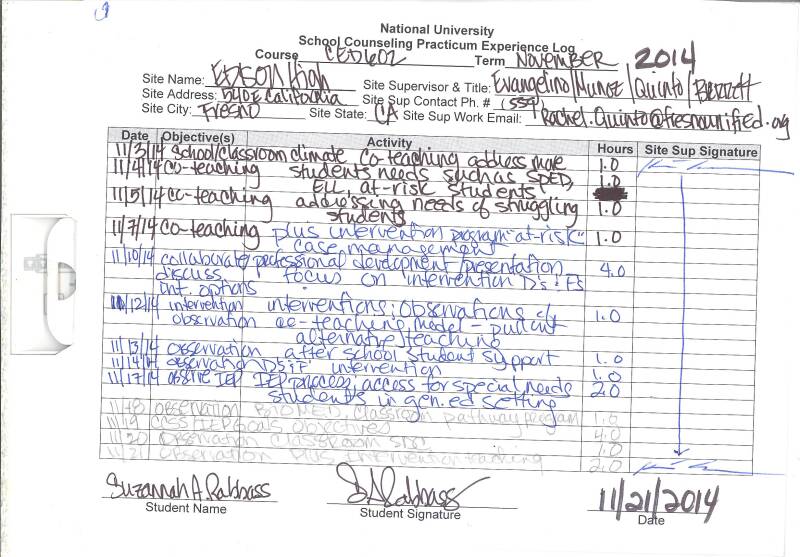 National University
School Counseling Practicum Experience Log
Course CED602 Term November 2014
Site Name: Edison High Site Supervisor & Title: Evangelino/Munoz/Quinto/Berrett
Site Address: 540 E California Site Sup Contact Ph. # (559)
Site City: Fresno Site State: CA Site Sup Work Email: Rachel.Quinto@fresnounified.org
Date Objective(s) Activity Hours Site Sup Signature
11/3/14 School/classroom climate co-teaching address more 1.0
11/4/14 co-teaching students needs such as SPED, 1.0
ELL, at-risk students
11/5/14 co-teaching addressing needs of struggling 1.0
students
11/7/14 co-teaching plus intervention program "at-risk" 1.0
case management
11/10/14 collaborate/professional development/presentation 4.0
discuss focus on intervention D's & F's
int. options
11/12/14 intervention interventions: observations of 1.0
observation co-teaching model -
alternative teaching
11/13/14 observation after school student support 1.0
11/14/14 observation D's & F intervention 1.0
11/17/14 observe IEP IEP process; access for special needs 2.0
students in gen.ed setting
11/18 observation BIOMED, classroom pathway program 1.0
11/19 IEP goals, objectives 4.0
11/20 observation classroom SDC 1.0
11/21 observation plus intervention teaching 2.0
Suzannah A. Rabbass 11/21/2014
Student Name Student Signature Date